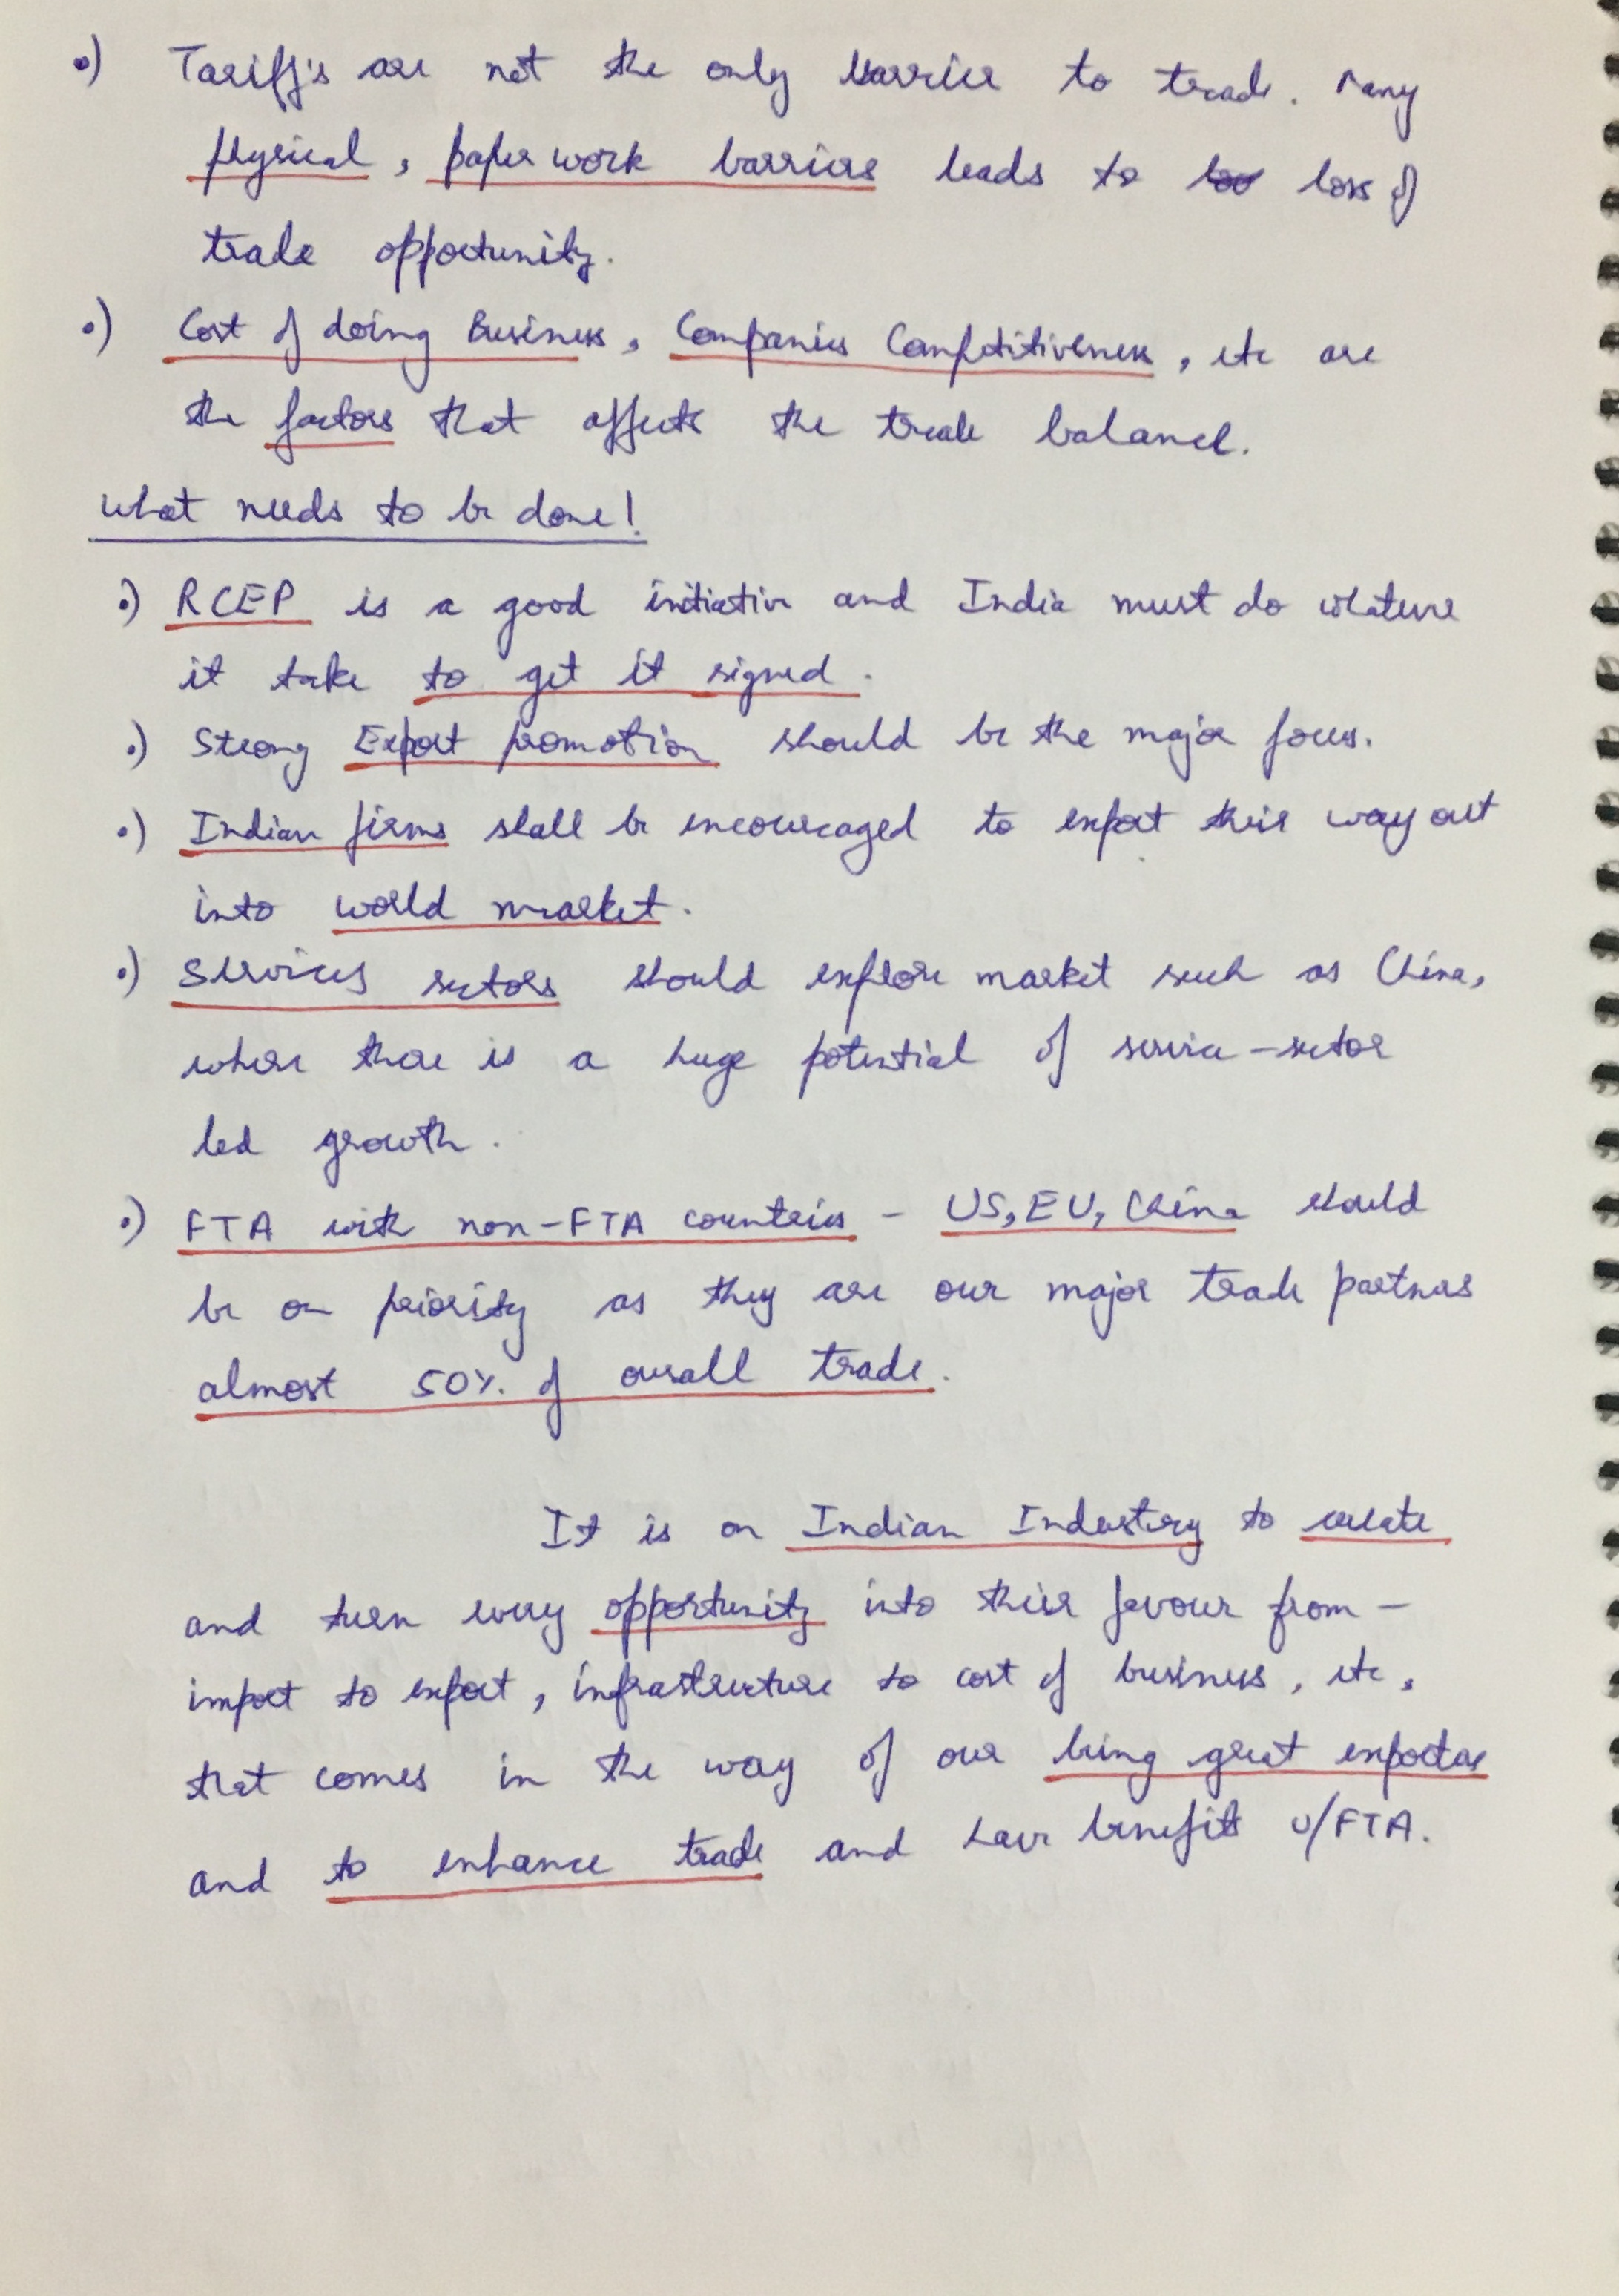 •) Tariff's are not the only barrier to trade. Many
physical, paper work barriers leads to loss of
trade opportunity.
•) Cost of doing Business, Companies Competitiveness, etc are
the factors that affects the trade balance.
What needs to be done!
•) RCEP is a good initiative and India must do whatever
it take to get it signed.
•) Strong Export promotion should be the major focus.
•) Indian firms shall be encouraged to export their way out
into world market.
•) Services sectors should explore market such as China,
where there is a huge potential of service-sector
led growth.
•) FTA with non-FTA countries - US, EU, China should
be on priority as they are our major trade partners
almost 50% of overall trade.
It is on Indian Industry to create
and turn every opportunity into their favour from -
import to export, infrastructure to cost of business, etc,
that comes in the way of our being great exporter
and to enhance trade and have benefit u/FTA.